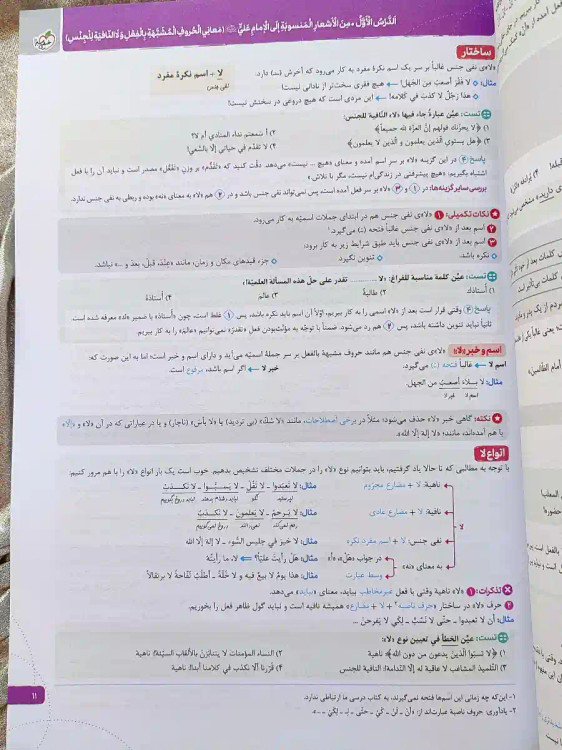 الدّرس الأوّل - مِنَ الأشعارِ المَنسوبَةِ إلَی الإمامِ عَليٍّ (مَعاني الحُروفِ المُشَبَّهَةِ بِالفِعلِ وَ لا النّافيَةِ لِلجِنسِ)
ساختار
«لا»ی نفی جنس غالباً بر سر یک اسم نکرهٔ مفرد به کار می‌رود که آخرش (ــَ) دارد.
لا + اسم نکرهٔ مفرد
نفی جنس
مثال: لا فَقْرَ أصعبُ مِنَ الجَهل! ← هیچ فقری سخت‌تر از نادانی نیست!
هذا رَجُلٌ لا کذبَ في کَلامه! ← این مردی است که هیچ دروغی در سخنش نیست!
تست: عیّن عبارةً جاء فیها «لا» النّافیة للجنس:
۱) ﴿لا یحزنك قولهم إنّ العزّة لله جمیعاً﴾
۲) أ سَمعتم نداء المنادي أم لا؟
۳) ﴿هل یستوي الّذین یعلمون و الّذین لا یعلمون﴾
۴) لا تقدّم في حیاتي إلّا بالسّعي!
پاسخ ۴ در این گزینه «لا» بر سر اسم آمده و معنای «هیچ ... نیست» می‌دهد. دقّت کنید که «تَقَدُّم» بر وزن «تَفَعُّل» مصدر است و نباید آن را با فعل
اشتباه بگیریم: «هیچ پیشرفتی در زندگی‌ام نیست، مگر با تلاش.»
بررسی سایر گزینه‌ها: در ۱ و ۳ «لا» بر سر فعل آمده است، پس نمی‌تواند نفی جنس باشد و در ۲ هم «لا» به معنای «نه» بوده و ربطی به نفی جنس ندارد.
نکات تکمیلی: ۱ «لا»ی نفی جنس هم در ابتدای جملات اسمیّه به کار می‌رود.
۲ اسم بعد از «لا»ی نفی جنس غالباً فتحه (ــَ) می‌گیرد.۱
۳ اسم بعد از «لا»ی نفی جنس باید طبق شرایط زیر به کار برود:
نکره باشد.
تنوین نگیرد.
جزء قیدهای مکان و زمان، مانند «عِنْدَ، قَبلَ، بَعدَ و ...» نباشد.
تست: عیّن کلمة مناسبة للفراغ: «لا ........... تقدر علی حلّ هذه المسألة العلمیّة!»
۱) أُستاذكَ
۲) طالبةَ
۳) عالمَ
۴) أستاذةٌ
پاسخ ۲ وقتی قرار است بعد از «لا» اسمی را به کار ببریم، اوّلاً آن اسم باید نکره باشد، پس ۱ غلط است، چون «أُستاذ» با ضمیر «ك» معرفه شده است.
ثانیاً نباید تنوین داشته باشد، پس ۴ هم رد می‌شود. ضمناً با توجّه به مؤنّث‌بودن فعل «تقدر» نمی‌توانیم «عالِمَ» را به کار ببریم.
اسم و خبر «لا»:
«لا»ی نفی جنس هم مانند حروف مشبهة بالفعل بر سر جملهٔ اسمیّه می‌آید و دارای اسم و خبر است؛ اما به این صورت که:
اسم لا ← غالباً فتحه (ــَ) می‌گیرد.
خبر لا ← اگر اسم باشد، مرفوع است.
مثال: لا بـلاءَ أصعبُ من الجهل.
اسم لا خبر لا
نکته: گاهی خبر «لا» حذف می‌شود؛ مثلاً در برخی اصطلاحات، مانند: «لا شكّ» (بی تردید) یا «لا بأس» (ناچار) و یا در عباراتی که در آن «لا» و «إلّا»
با هم آمده‌اند، مانند: «لا إلهَ إلّا الله».
انواع لا
با توجه به مطالبی که تا حالا یاد گرفتیم، باید بتوانیم نوع «لا» را در جملات مختلف تشخیص بدهیم. خوب است یک بار انواع «لا» را با هم مرور کنیم.
ناهیه: لا + مضارع مجزوم
مثال: لا تَعبُدوا ــ لا تَقُلْ ــ لا یَسـبّـوا ــ لا تکـذبْ
نپرستید نگو نباید دشنام بدهند نباید دروغ بگویی
نافیه: لا + مضارع عادی
مثال: لا یَرحـمُ ــ لا یَعلمونَ ــ لا تکـذبُ
رحم نمی‌کند نمی‌دانند دروغ نمی‌گویی
لا
نفی جنس: لا + اسم مفرد نکره
مثال: لا خیرَ في جلیسِ السّوء ــ لا إلهَ إلّا الله
به معنای «نه»
در جواب «هَلْ»، «أ»
مثال: هَلْ رأیتَ علیّاً؟ ← لا، ما رأیتُه
وسط عبارت
مثال: هذا یومٌ لا بیعٌ فیه و لا خُلّةٌ ــ أطلُبُ تفّاحةً لا برتقالاً
تذکرات: ۱ «لا» ناهیة وقتی با فعل غیرمخاطب بیاید، معنای «نباید» می‌دهد.
۲ حرف «لا» در ساختار «حرف ناصبه۲ + لا + مضارع» همیشه نافیه است و نباید گول ظاهر فعل را بخوریم.
مثال: أن لا تعبدوا ــ حتّی لا تَسُبَّ ــ لِکَي لا یَفرحنَ ...
تست: عیّن الخطأ في تعیین نوع «لا»:
۱) ﴿لا تَسبّوا الّذینَ یدعون من دون الله﴾: ناهیة
۲) النساء المؤمنات لا یتنابزنَ بالألقاب السیّئة!: ناهیة
۳) التّلمیذ المشاغب لا عاقبة له إلّا النّدامة!: النافیة للجنس
۴) قَرّرنا ألّا نکذب في کلامنا أبداً!: ناهیة
۱- این‌که چه زمانی این اسم‌ها فتحه نمی‌گیرند، به کتاب درسی ما ارتباطی ندارد.
۲- یادآوری: حروف ناصبة عبارت‌اند از: «أنْ ــ لَنْ ــ کَيْ ــ حتّی ــ لِـ ــ لِکَي ــ ...»
۱۱